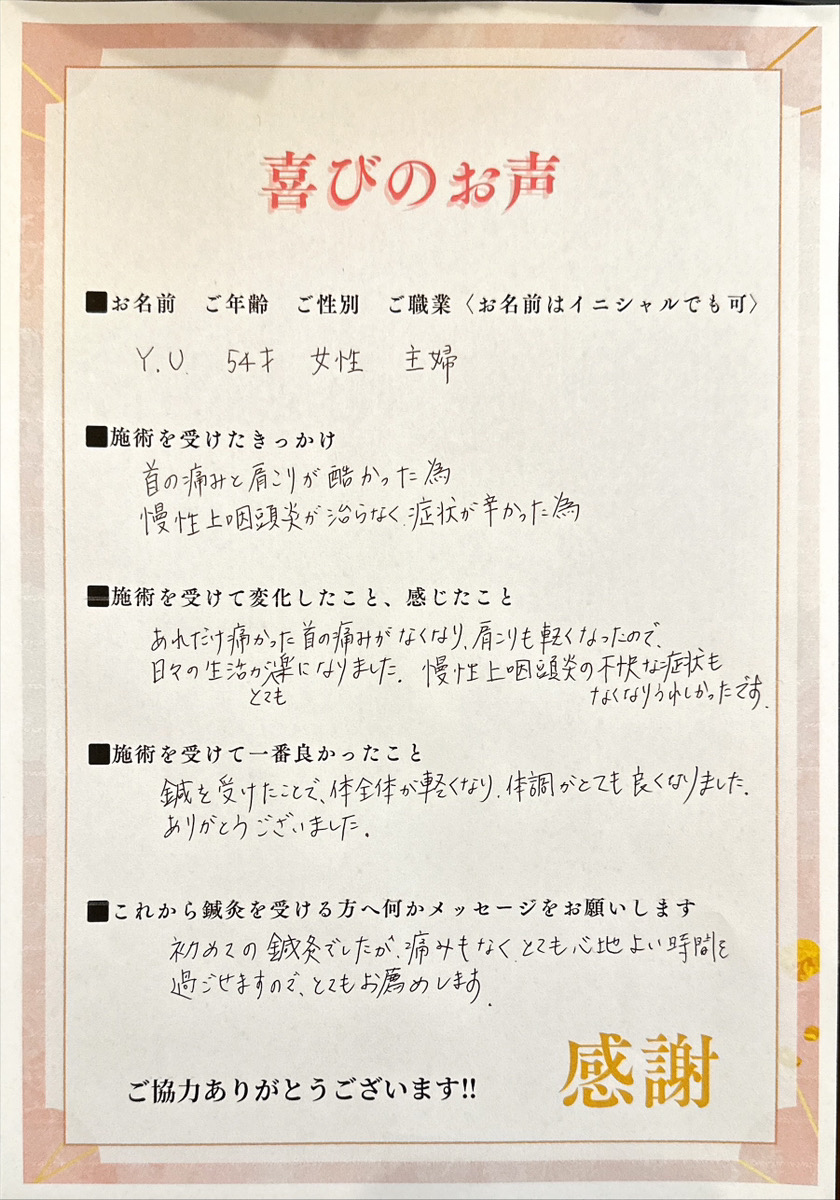 喜びのお声
■お名前　ご年齢　ご性別　ご職業〈お名前はイニシャルでも可〉
Y.U.　54才　女性　主婦
■施術を受けたきっかけ
首の痛みと肩こりが酷かった為
慢性上咽頭炎が治らなく、症状が辛かった為
■施術を受けて変化したこと、感じたこと
あれだけ痛かった首の痛みがなくなり、肩こりも軽くなったので、
日々の生活が楽になりました。慢性上咽頭炎の不快な症状も
とても　なくなりうれしかったです。
■施術を受けて一番良かったこと
鍼を受けたことで、体全体が軽くなり、体調がとても良くなりました。
ありがとうございました。
■これから鍼灸を受ける方へ何かメッセージをお願いします
初めての鍼灸でしたが、痛みもなく、とても心地よい時間を
過ごせますので、とてもお薦めします。
ご協力ありがとうございます!!
感謝